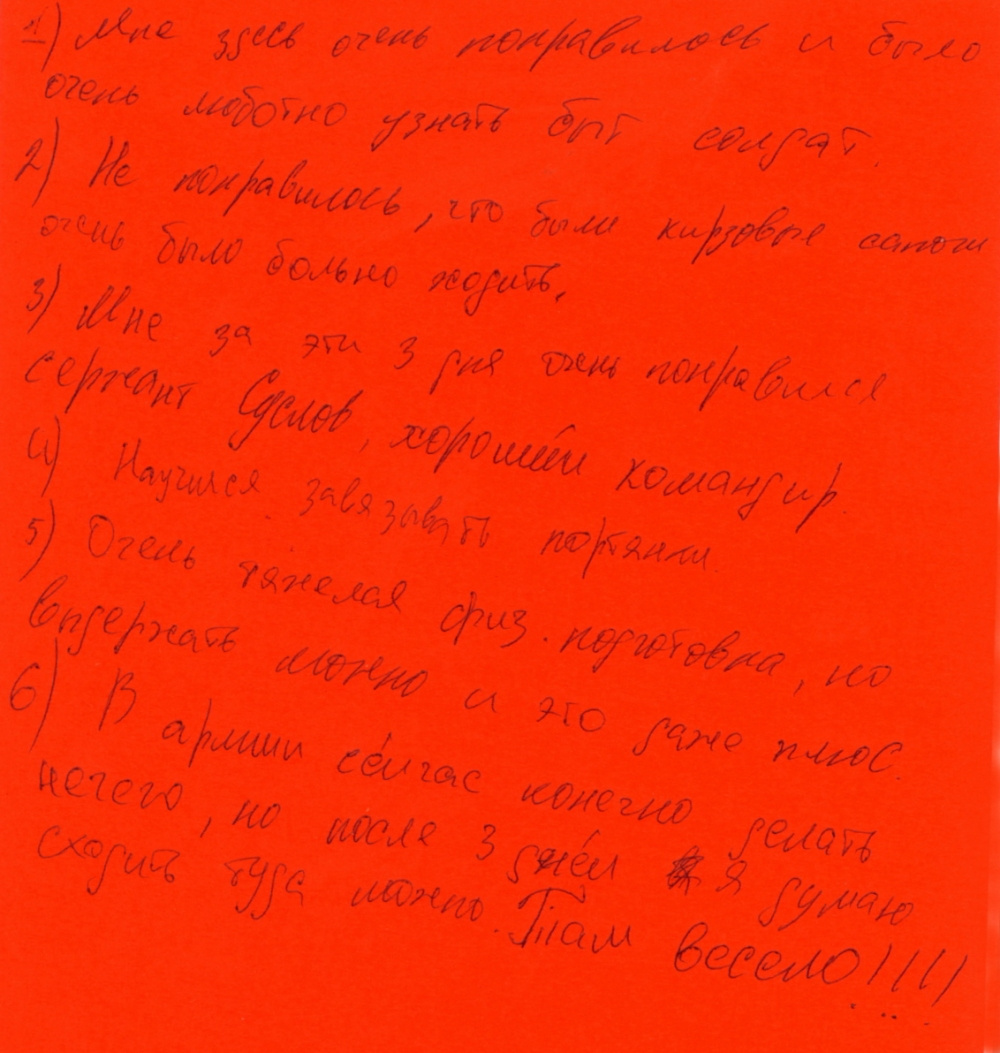 1) Мне здесь очень понравилось и было
очень люботно узнать быт солдат.
2) Не понравилось, что были кирзовые сапоги
очень было больно ходить.
3) Мне за эти 3 дня очень понравился
сержант хороший командир.
4) Научился завязывать портянки.
5) Очень тяжелая физ. подготовка, но
выдержать можно и это даже плюс.
6) В армии сейчас конечно делать
нечего, но после 3 дней я думаю
сходить туда можно. Там весело!!!!